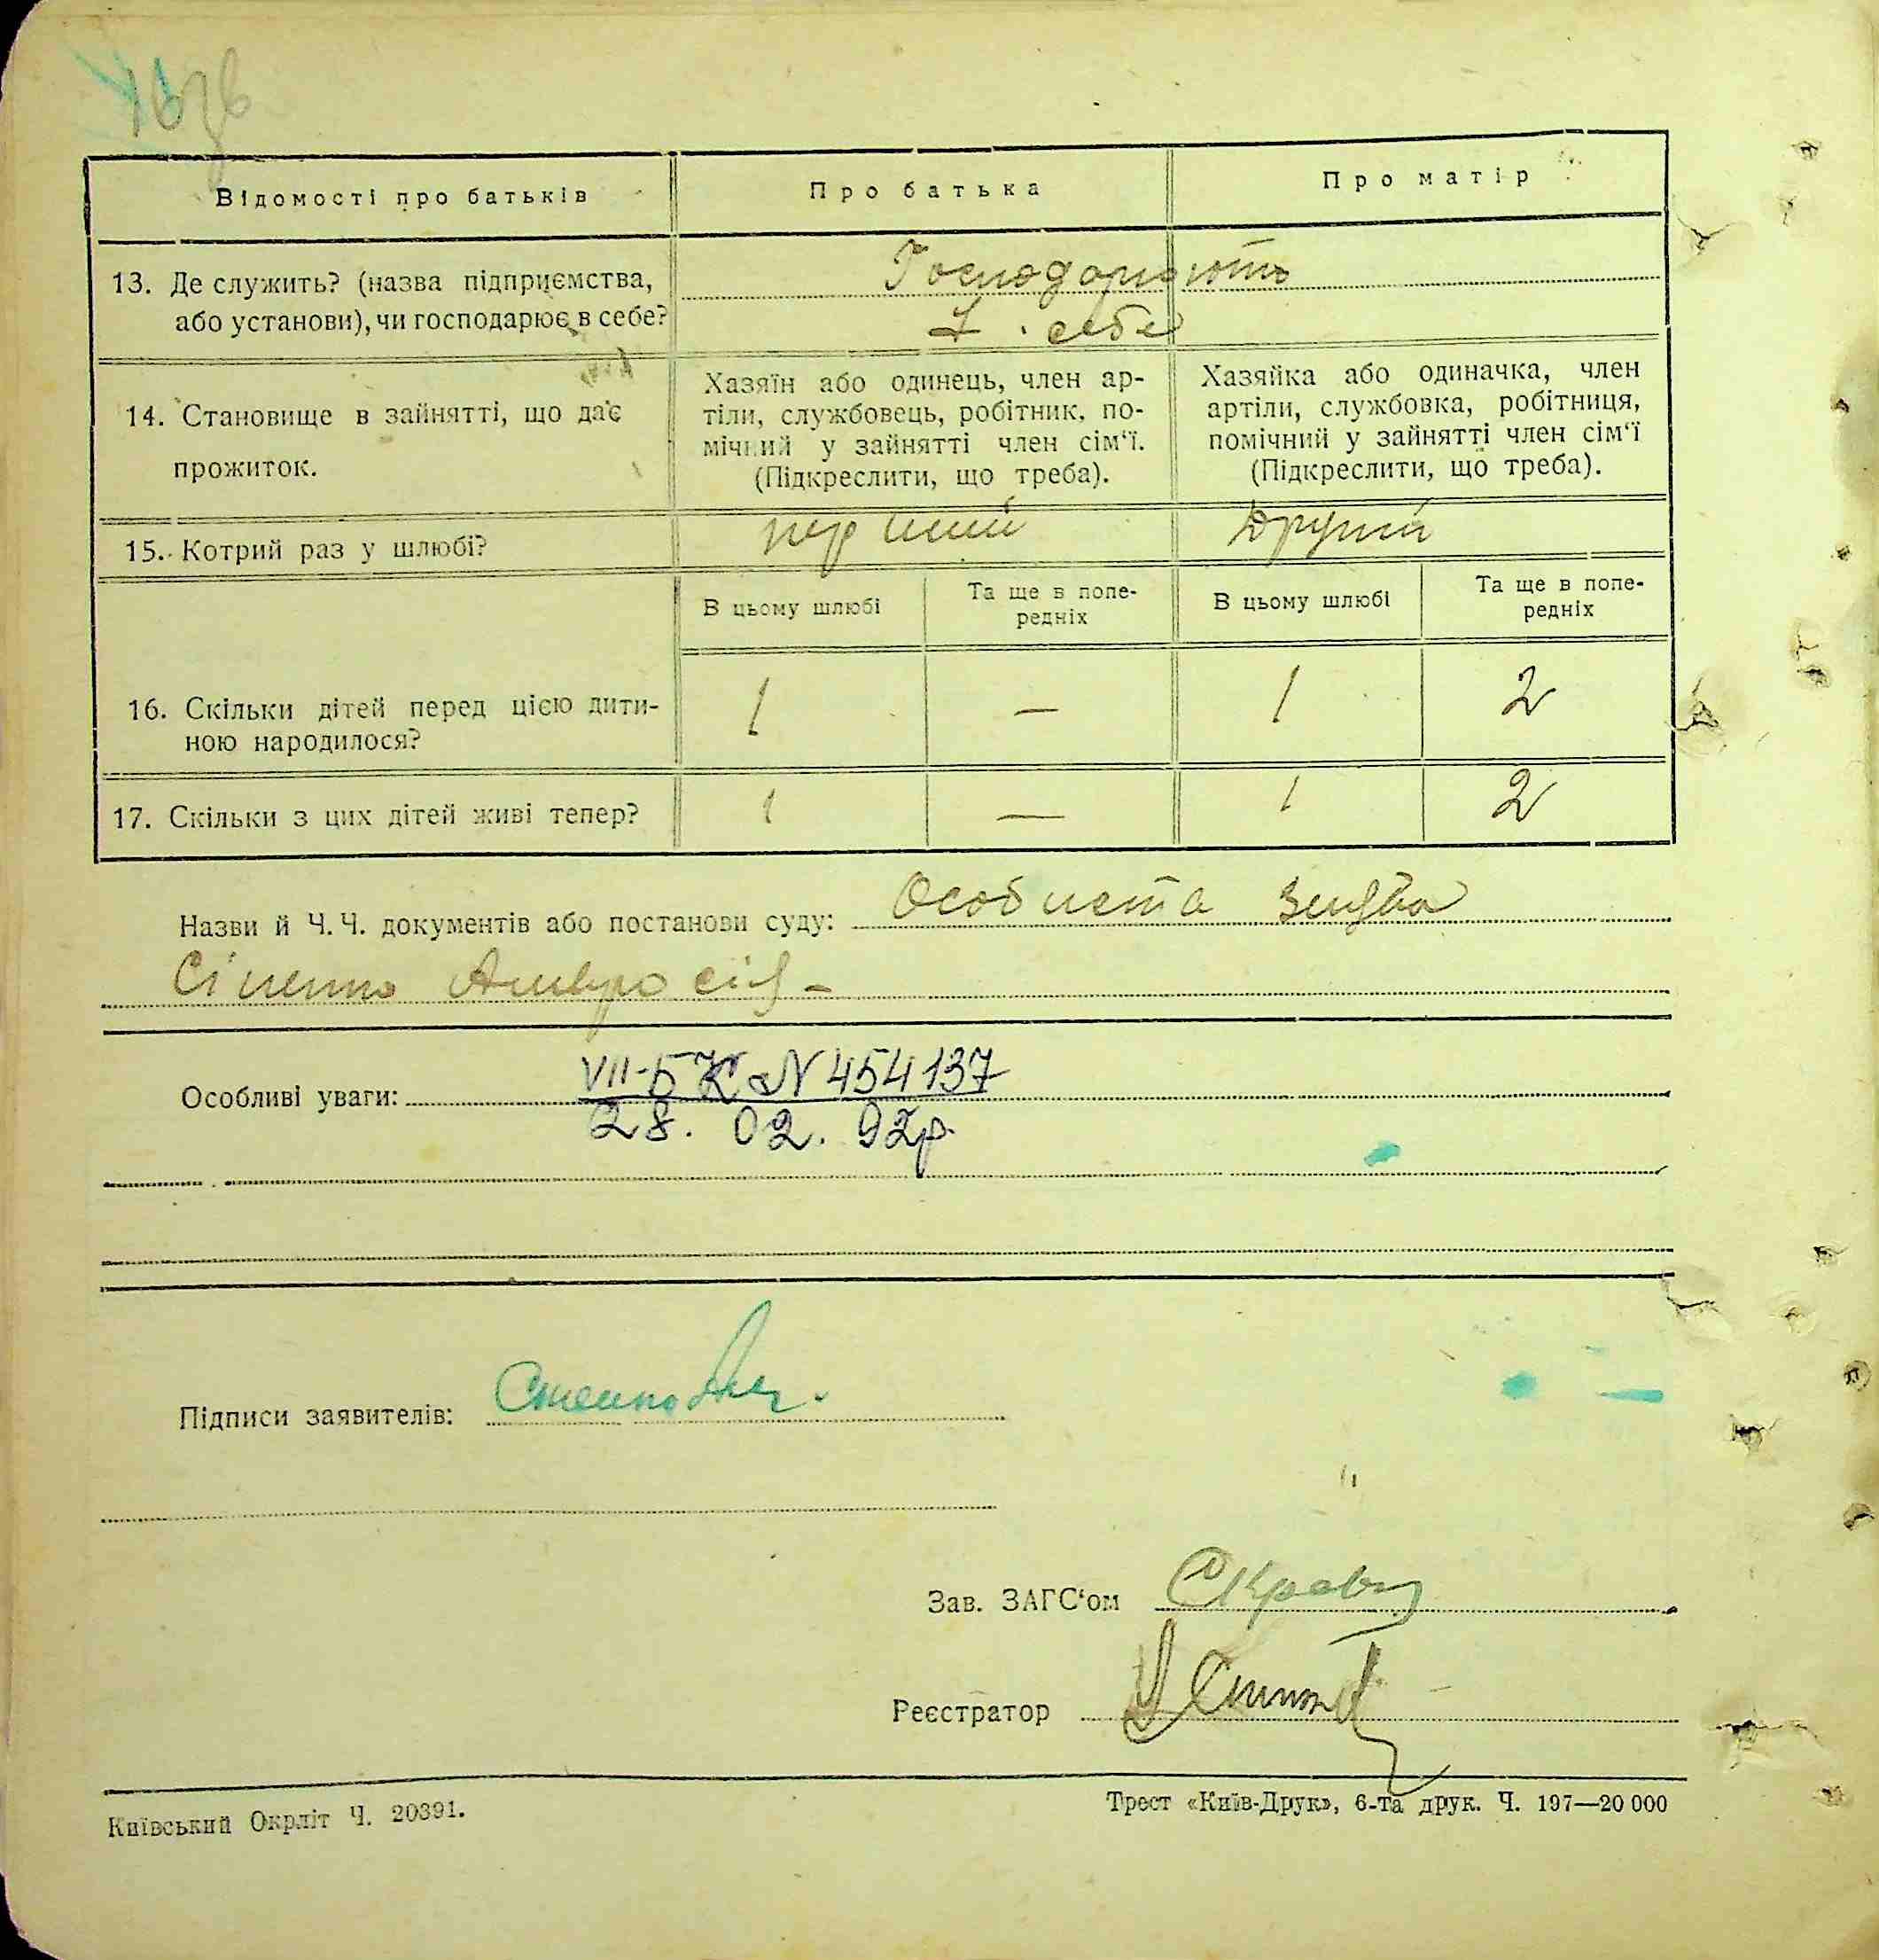 Відомості про батьків Про батька Про матір
13. Де служить? (назва підприємства, або установи), чи господарює в себе?
Господарюють
в себе
14. Становище в зайнятті, що дає прожиток.
Хазяїн або одинець, член ар-
тіли, службовець, робітник, по-
мічний у зайнятті член сім‘ї.
(Підкреслити, що треба).
Хазяйка або одиначка, член
артіли, службовка, робітниця,
помічний у зайнятті член сім‘ї
(Підкреслити, що треба).
15. Котрий раз у шлюбі? перший другий
В цьому шлюбі Та ще в попе-
редніх
В цьому шлюбі Та ще в попе-
редніх
16. Скільки дітей перед цією дити-
ною народилося?
1 — 1 2
17. Скільки з цих дітей живі тепер? 1 — 1 2
Назви й Ч. Ч. документів або постанови суду: Особиста
Особливі уваги: VII-БК N 454137
28. 02. 92р.
Підписи заявителів:
Зав. ЗАГС‘ом
Реєстратор
Київський Окрліт Ч. 20391.
Трест «Київ-Друк», 6-та друк. Ч. 197—20 000